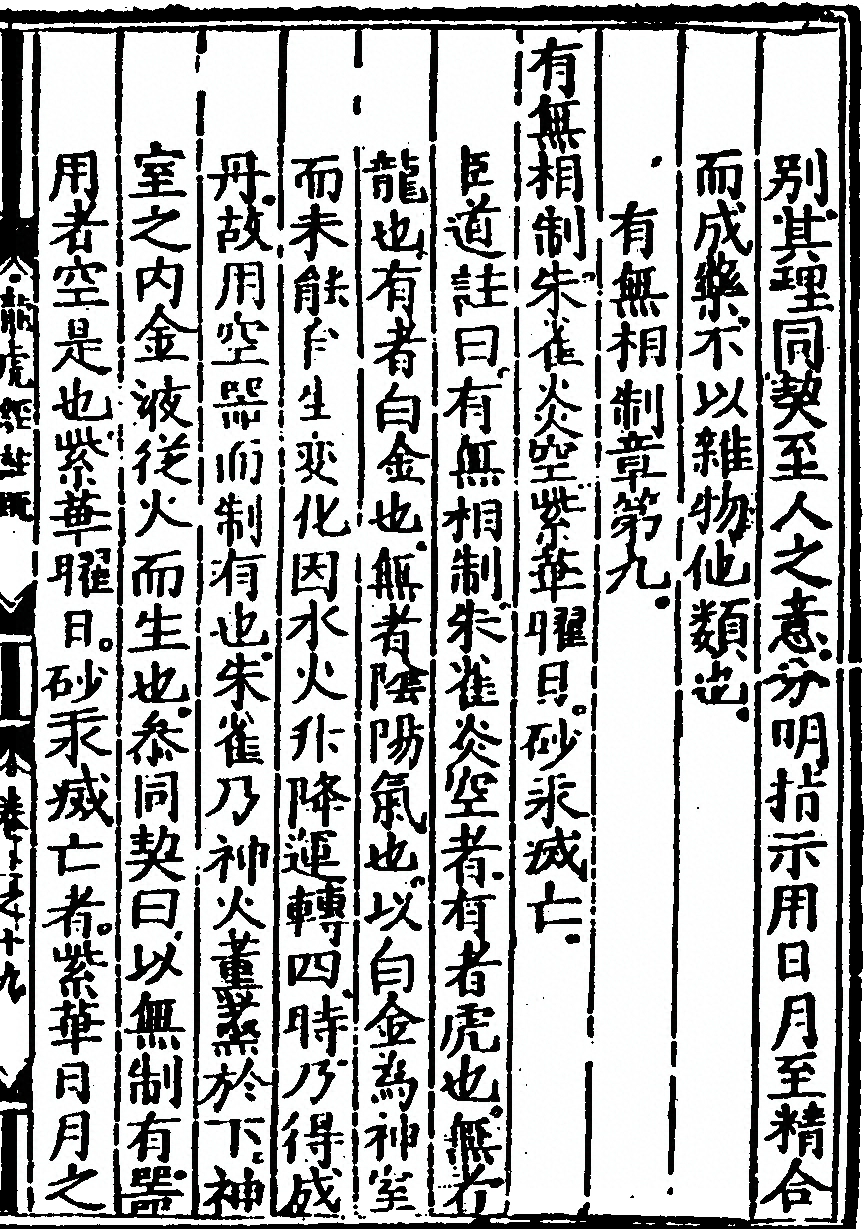 别其理同契至人之意分明指示用日月至精合
而成藥不以雜物他類也
有無相制章第九
有無相制朱雀炎空紫華曜日砂汞滅亡
臣道註曰有無相制朱雀炎空者有者虎也無者
龍也有者白金也無者陰陽氣也以白金為神室
而未能自生變化因水火升降運轉四時乃得成
丹故用空器而制有也朱雀乃神火薰蒸於下神
室之内金液從火而生也叅同契曰以無制有器
用者空是也紫華曜日砂汞滅亡者紫華日月之
龍虎經註䟽 卷 之十九